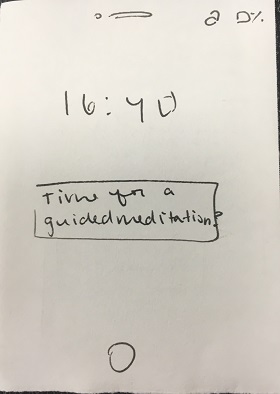 20%
16:40
Time for a
guided meditation?